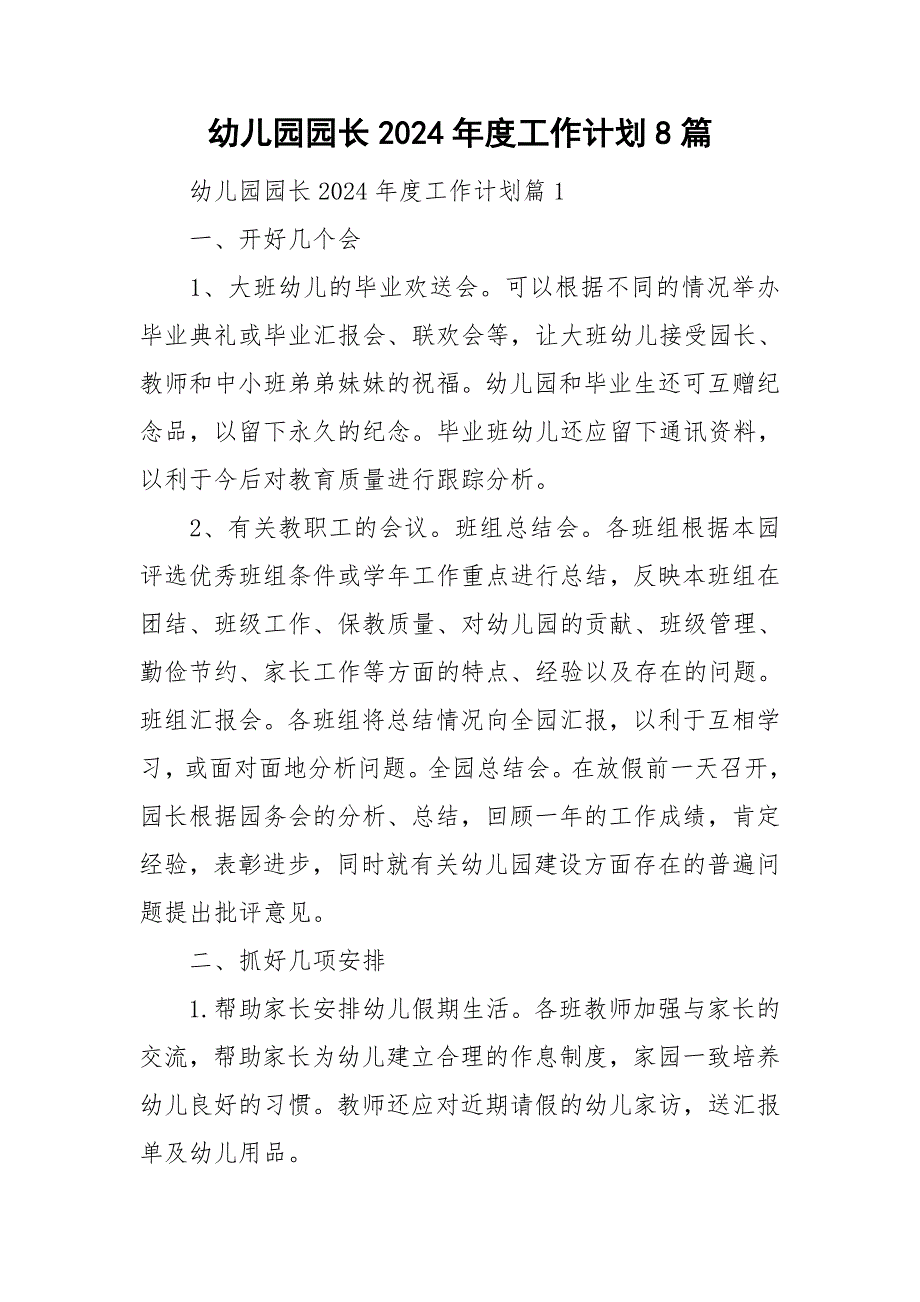 幼儿园园长 2024 年度工作计划 8 篇
幼儿园园长 2024 年度工作计划篇 1
一、开好几个会
1、大班幼儿的毕业欢送会。可以根据不同的情况举办
毕业典礼或毕业汇报会、联欢会等，让大班幼儿接受园长、
教师和中小班弟弟妹妹的祝福。幼儿园和毕业生还可互赠纪
念品，以留下永久的纪念。毕业班幼儿还应留下通讯资料，
以利于今后对教育质量进行跟踪分析。
2、有关教职工的会议。班组总结会。各班组根据本园
评选优秀班组条件或学年工作重点进行总结，反映本班组在
团结、班级工作、保教质量、对幼儿园的贡献、班级管理、
勤俭节约、家长工作等方面的特点、经验以及存在的问题。
班组汇报会。各班组将总结情况向全园汇报，以利于互相学
习，或面对面地分析问题。全园总结会。在放假前一天召开，
园长根据园务会的分析、总结，回顾一年的工作成绩，肯定
经验，表彰进步，同时就有关幼儿园建设方面存在的普遍问
题提出批评意见。
二、抓好几项安排
1.帮助家长安排幼儿假期生活。各班教师加强与家长的
交流，帮助家长为幼儿建立合理的作息制度，家园一致培养
幼儿良好的习惯。教师还应对近期请假的幼儿家访，送汇报
单及幼儿用品。